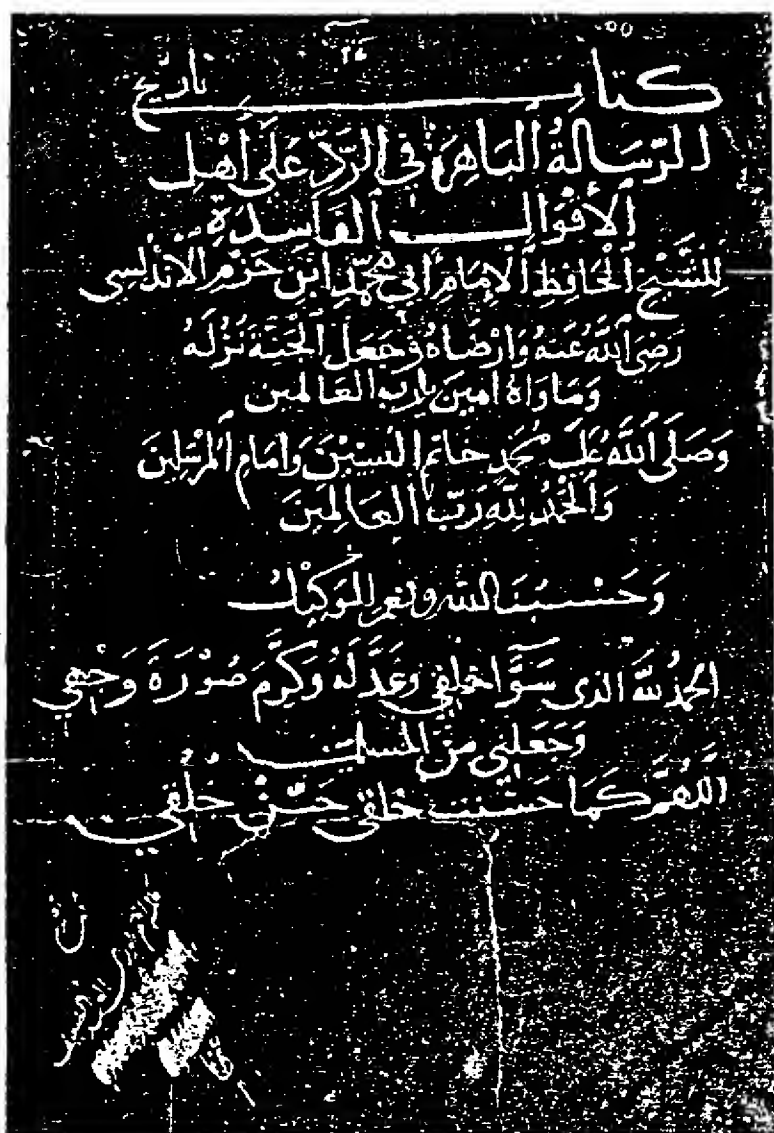 كتاب تاريخ
الرِّسَالَةُ البَاهِرَةُ فِي الرَّدِّ عَلَى أَهْلِ
الأَقْوَالِ الفَاسِدَةِ
لِلشَّيْخِ الْحَافِظِ الإِمَامِ أَبِي مُحَمَّدِ ابْنِ حَزْمٍ الأَنْدَلُسِي
رَضِيَ اللَّهُ عَنْهُ وَأَرْضَاهُ وَجَعَلَ الْجَنَّةَ نُزُلَهُ
وَمَاوَاهُ امِينَ يَارَبَّ العَالَمِينَ
وَصَلَّى اللَّهُ عَلَى مُحَمَّدٍ خَاتَمِ النَّبِيِّينَ وَإِمَامِ الْمُرْسَلِينَ
وَالْحَمْدُ لِلَّهِ رَبِّ العَالَمِينَ
وَحَسْبُنَا اللَّهُ وَنِعْمَ الْوَكِيلُ
الحمدُ للَّهِ الذي سَوَّا خلقي وَعَدَّلَهُ وَكَرَّمَ صُوْرَةَ وَجْهِي
وَجَعَلَنِي مِنَ الْمُسْلِمِينَ
اللَّهُمَّ كَمَا حَسَّنْتَ خَلْقِي حَسِّنْ خُلُقِي